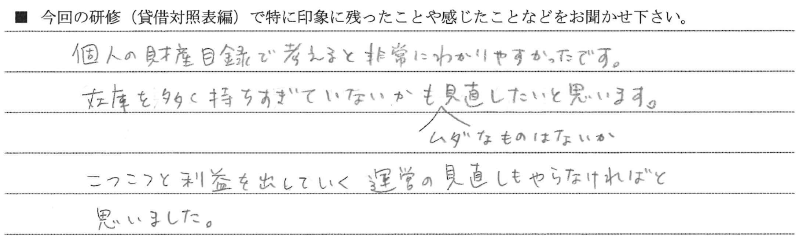 ■ 今回の研修（貸借対照表編）で特に印象に残ったことや感じたことなどをお聞かせ下さい。
個人の財産目録で考えると非常にわかりやすかったです。
在庫を多く持ちすぎていないかも見直したいと思います。
ムダなものはないか
こつこつと利益を出していく運営の見直しもやらなければと
思いました。